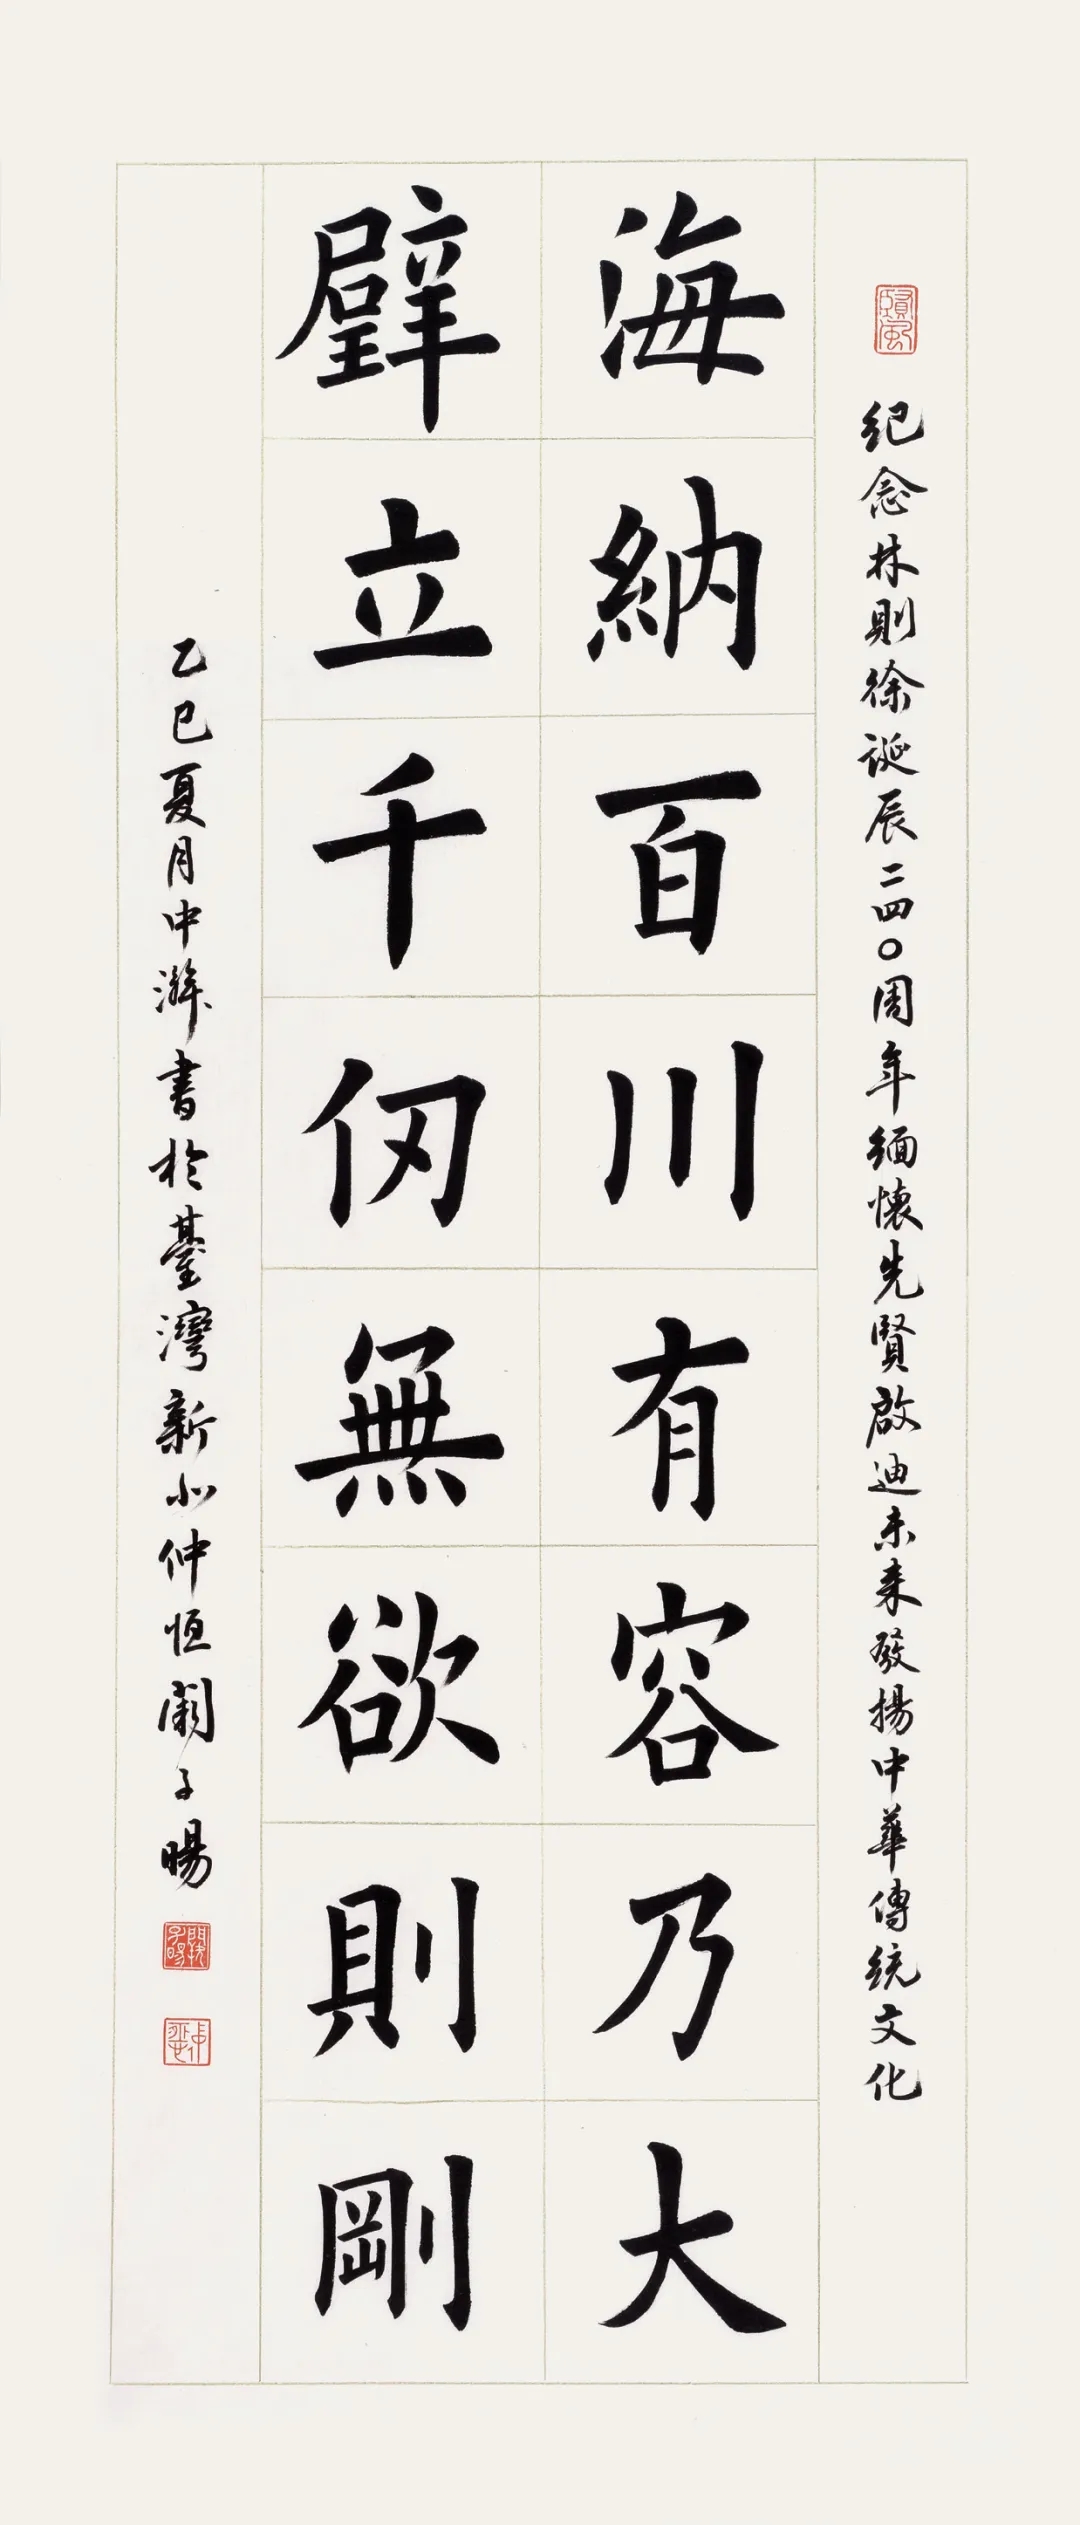 紀念林則徐誕辰二四〇周年緬懷先賢啟迪未来發揚中華傳統文化
海納百川有容乃大
壁立千仞無欲則剛
乙巳夏月中澣書於臺灣新北仲恒闕子暘
闕子暘